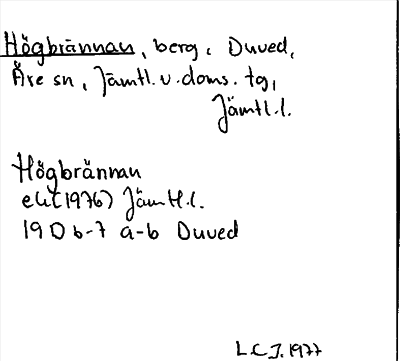 Högbrännan, berg, Duved,
Åre sn, Jämtl. v. doms. tg,
Jämtl.l.
Högbrännan
ek(1976) Jämtl.l.
19D 6-7 a-b Duved
L.C.J. 1977